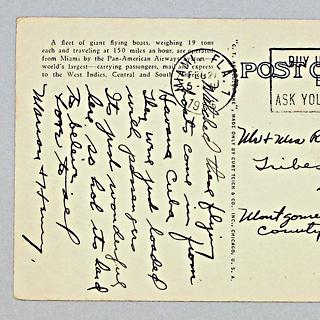 A fleet of giant flying boats, weighing 19 tons
each and traveling at 150 miles an hour, are operated
from Miami by the Pan-American Airways
world's largest—carrying passengers, mail and express
to the West Indies, Central and South
FLA.
FEB
POST C
BUY U
ASK YO
MADE ONLY BY CURT TEICH & CO., INC., CHICAGO, U. S. A.
Watched this flying
boat come in from
Havana Cuba
They were just loaded
with passengers
It's just wonderful
here so hot its hard
to believe
Love to all
Marion & Harry,
Mr & Mrs R
Tribes
Montgome
County